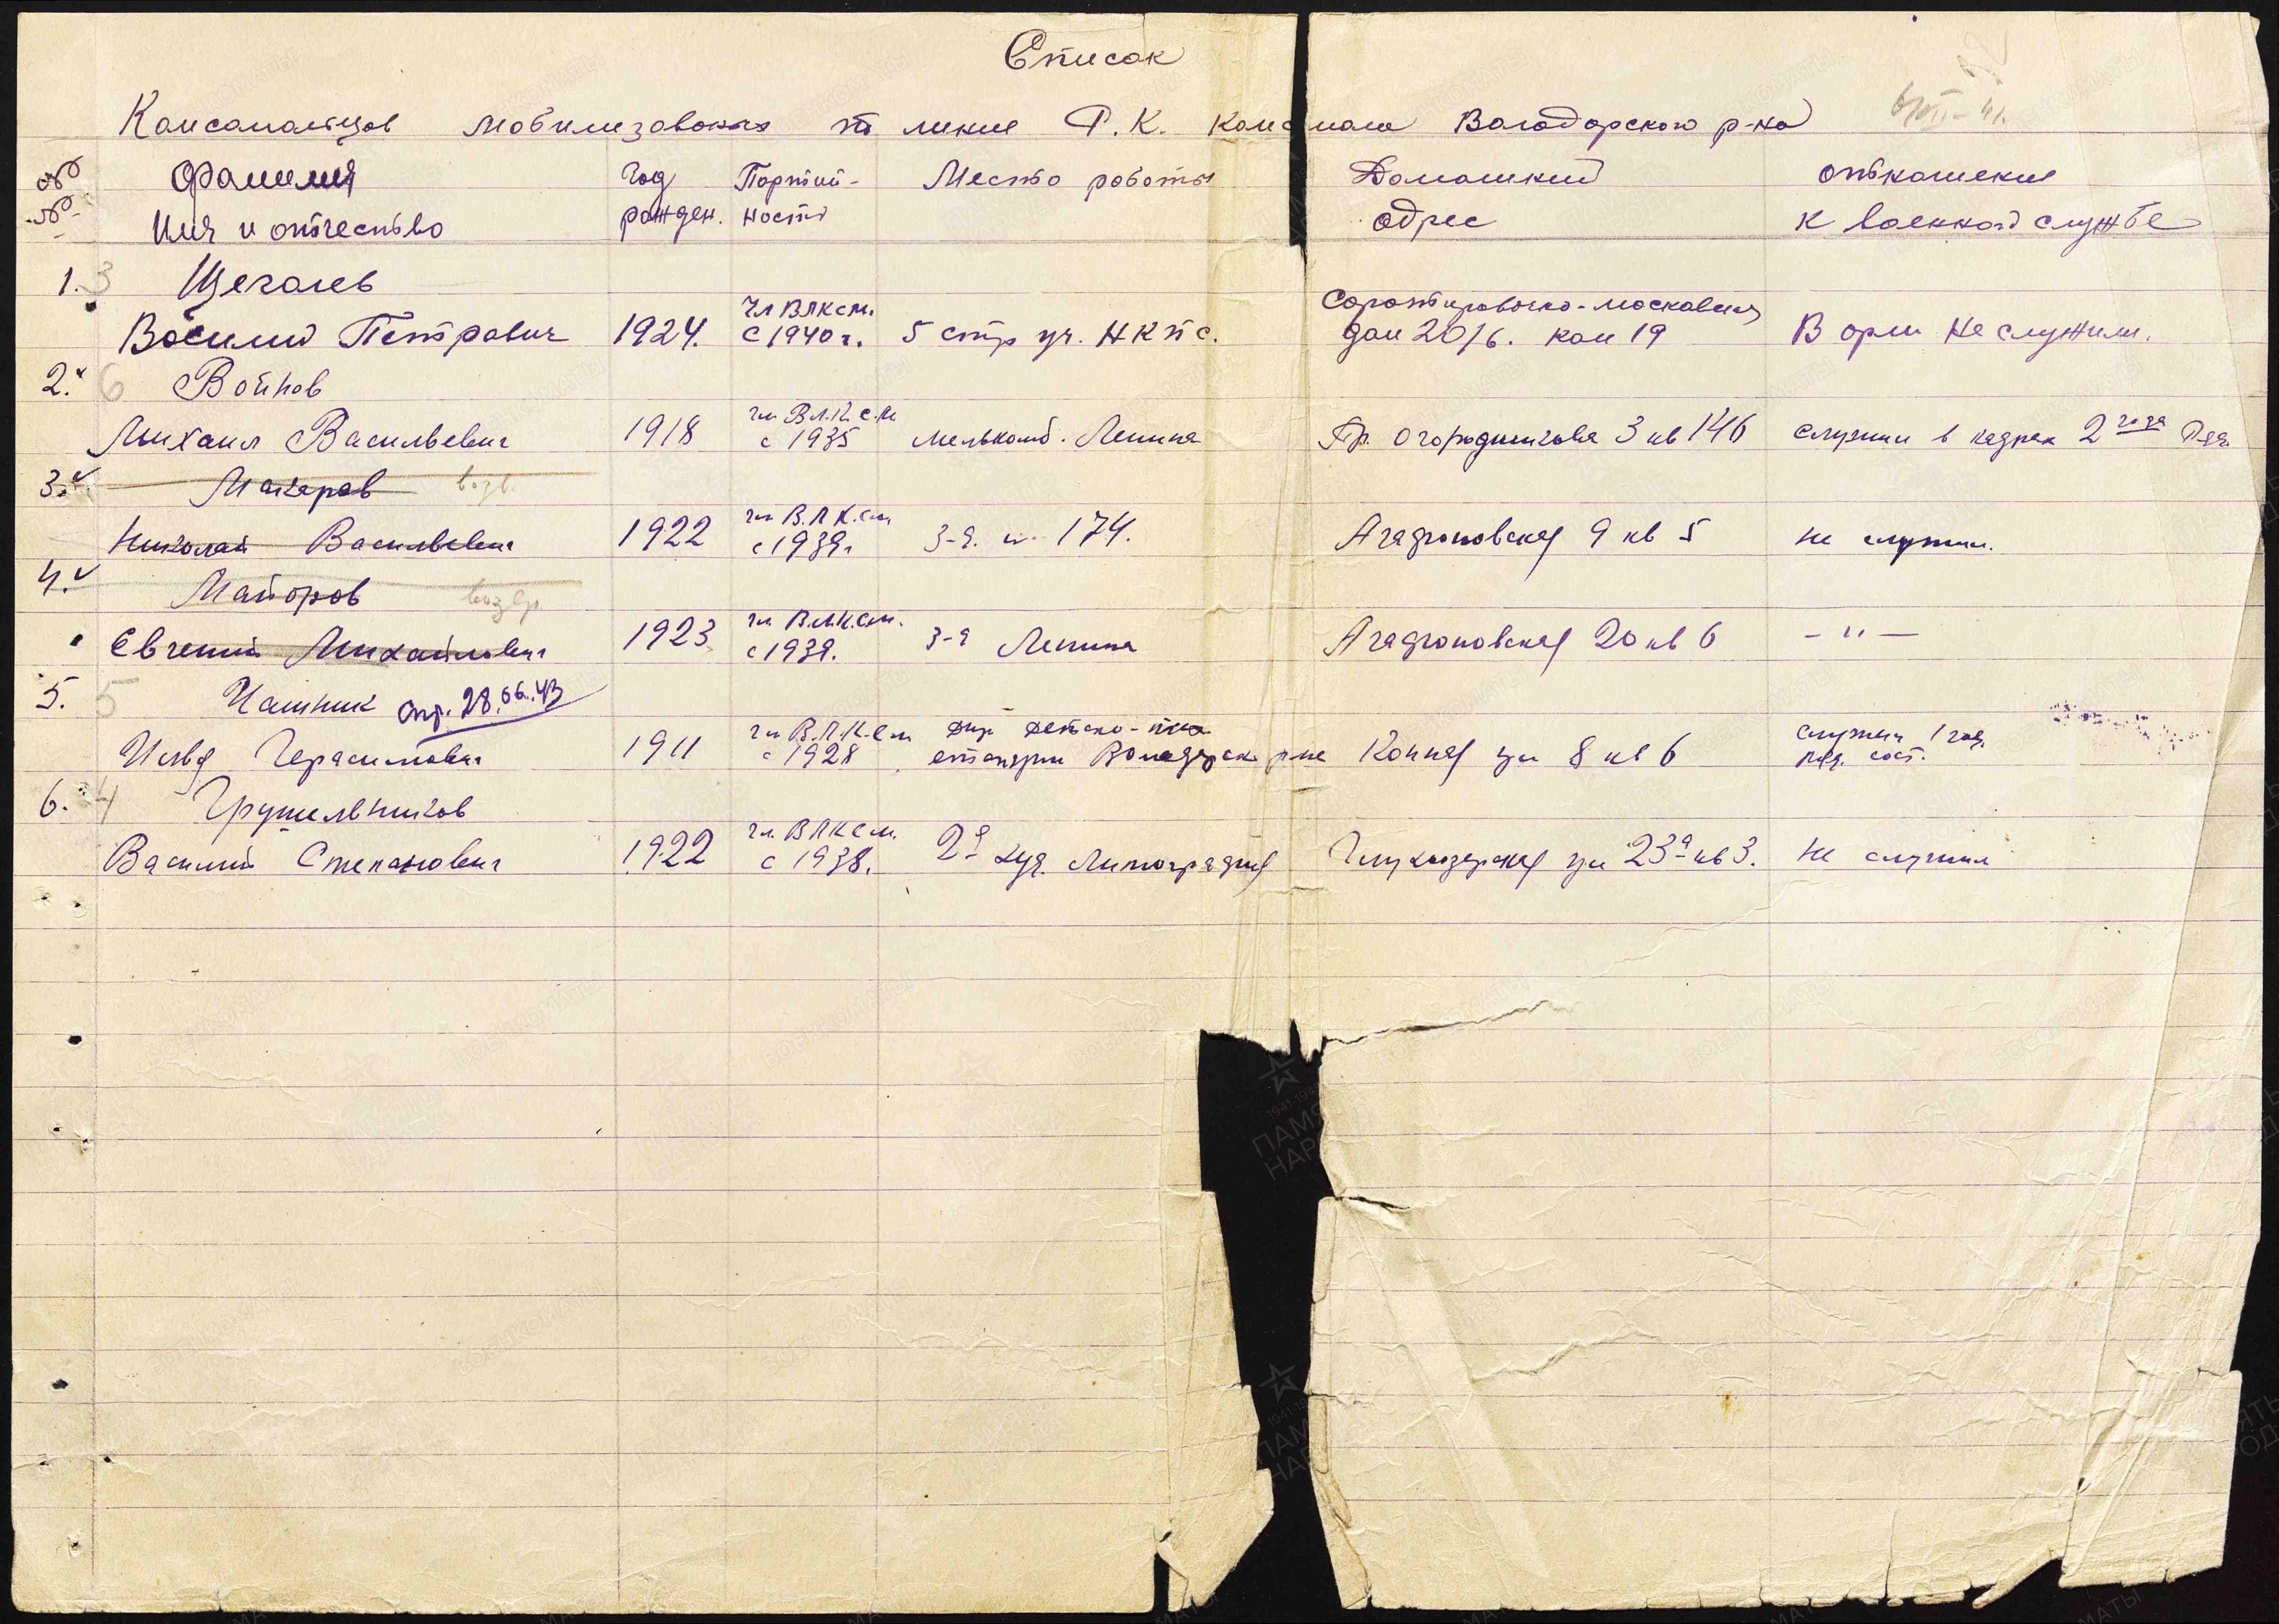 Список
Комсомольцов мобилизованых по линие Р.К. комсмола Володарского р-на
№ Фамилия Год Партий- Место работы Домашний отношение
№ Имя и отчество рожден. ность адрес к военной службе
1. 3 Щеголев
Василий Петрович 1924. Чл ВЛКСМ. с 1940 г. 5 стр уч. НКПС. Соротировочно-московская дом 20/6. ком 19 В арм не служил.
2. 6 Войнов
Михаил Васильевич 1918 чл В.Л.К.С.М с 1935 мелькомб. Ленина Пр. Огородникова 3 кв 146 служил в кадрах 2 года Ряд.
3. Макаров возв.
Николай Васильевич 1922 чл В.Л.К.См с 1939г 3-д. 174. Агафоновская 9 кв 5 не служил.
4. Майоров возвр.
Евгений Михайлович 1923 чл В.Л.К.См. с 1939. 3-д Ленина Агафоновская 20 кв 6 - " -
5. 5 Чашник 28.06.43
Герасимович 1911 чл В.Л.К.См с 1928 дир детско- станции Володарск. р-на Конная ул 8 кв 6 служил 1 год. ряд. сост.
6. 4 Грушельников
Василий Степанович 1922 чл. ВЛКСм. с 1938. 2я худ. Литография Глухозерская ул 23а кв 3. не служил